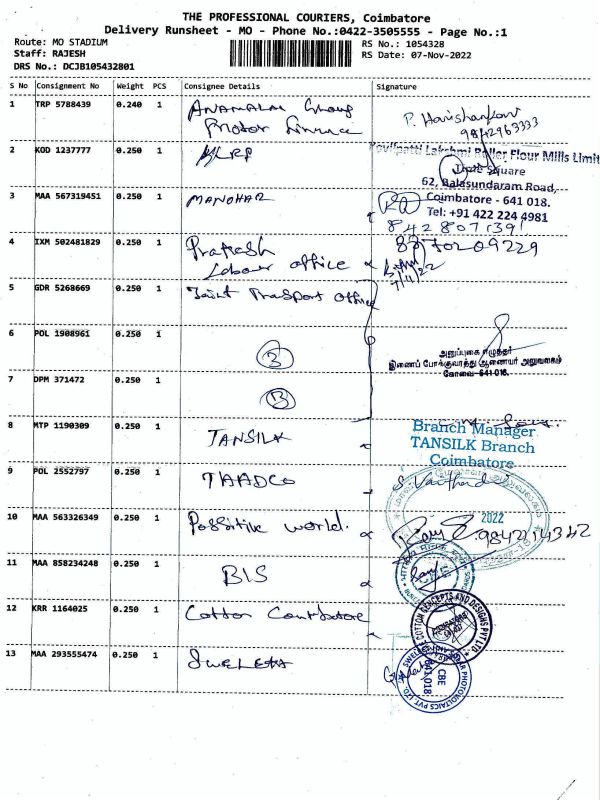 THE PROFESSIONAL COURIERS, Coimbatore
Delivery Runsheet - MO - Phone No.:0422-3505555 - Page No.:1
Route: MO STADIUM
Staff: RAJESH
DRS No.: DCJB105432801
RS No.: 1054328
RS Date: 07-Nov-2022
S No Consignment No Weight PCS Consignee Details Signature
1 TRP 5788439 0.240 1 Motor Finance P. Harishankar
9842963333
2 KOD 1237777 0.250 1 KLRF
Kovilpatti Lakshmi Roller Flour Mills Limit
Square
62, Balasundaram Road,
Coimbatore - 641 018.
Tel: +91 422 224 4981
3 MAA 567319451 0.250 1 MANOHAR
4 IXM 502481829 0.250 1 Prakash
Labour office
8870209229
7/11/22
5 GDR 5268669 0.250 1 Joint Transport Office
6 POL 1908961 0.250 1
அனுப்புகை எழுத்தர்
இணைப் போக்குவரத்து ஆணையர் அலுவலகம்
கோவை-641 018.
7 DPM 371472 0.250 1
8 MTP 1190309 0.250 1 TANSILK
Branch Manager
TANSILK Branch
Coimbatore
9 POL 2552797 0.250 1 TAADCO
10 MAA 563326349 0.250 1 Possitive world.
2022
11 MAA 858234248 0.250 1 BIS
12 KRR 1164025 0.250 1 Cotton
COTTON CONCEPTS AND DESIGNS PVT LTD
13 MAA 293555474 0.250 1
PHOTOVOLTAICS PVT. LTD.
CBE
641 018